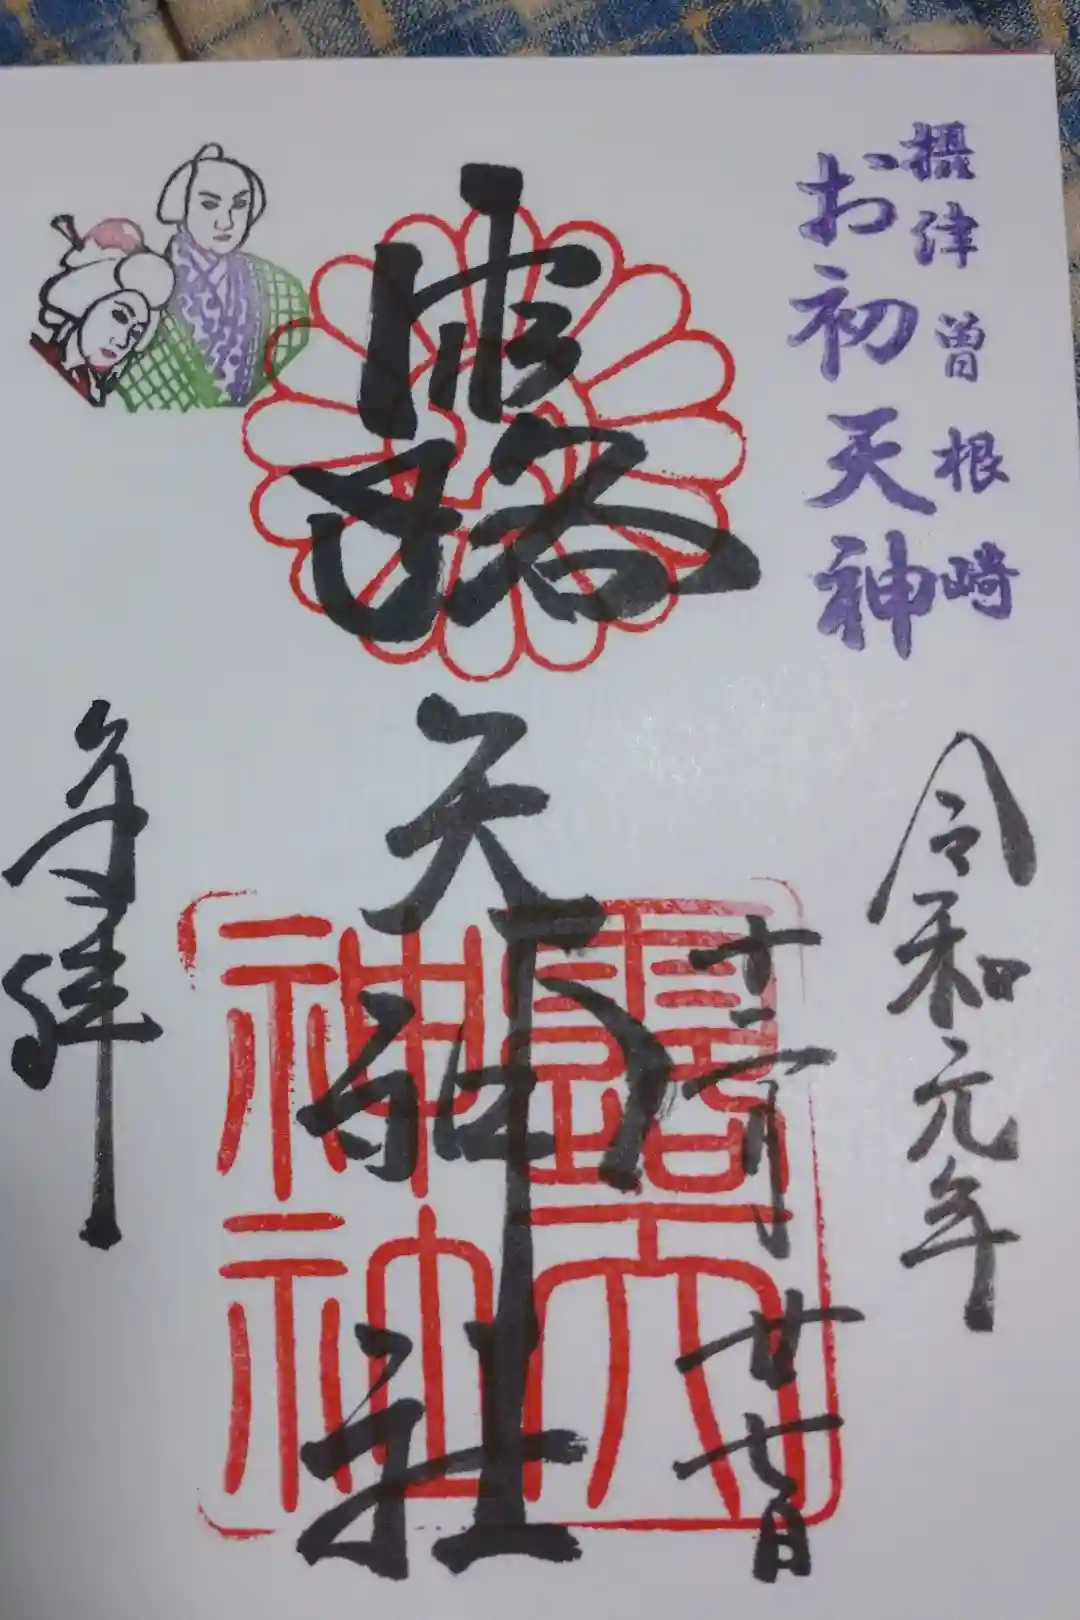 摂津曽根崎
お初天神
令和元年
十二月廿七日
露天神社
奉拝
露天神社